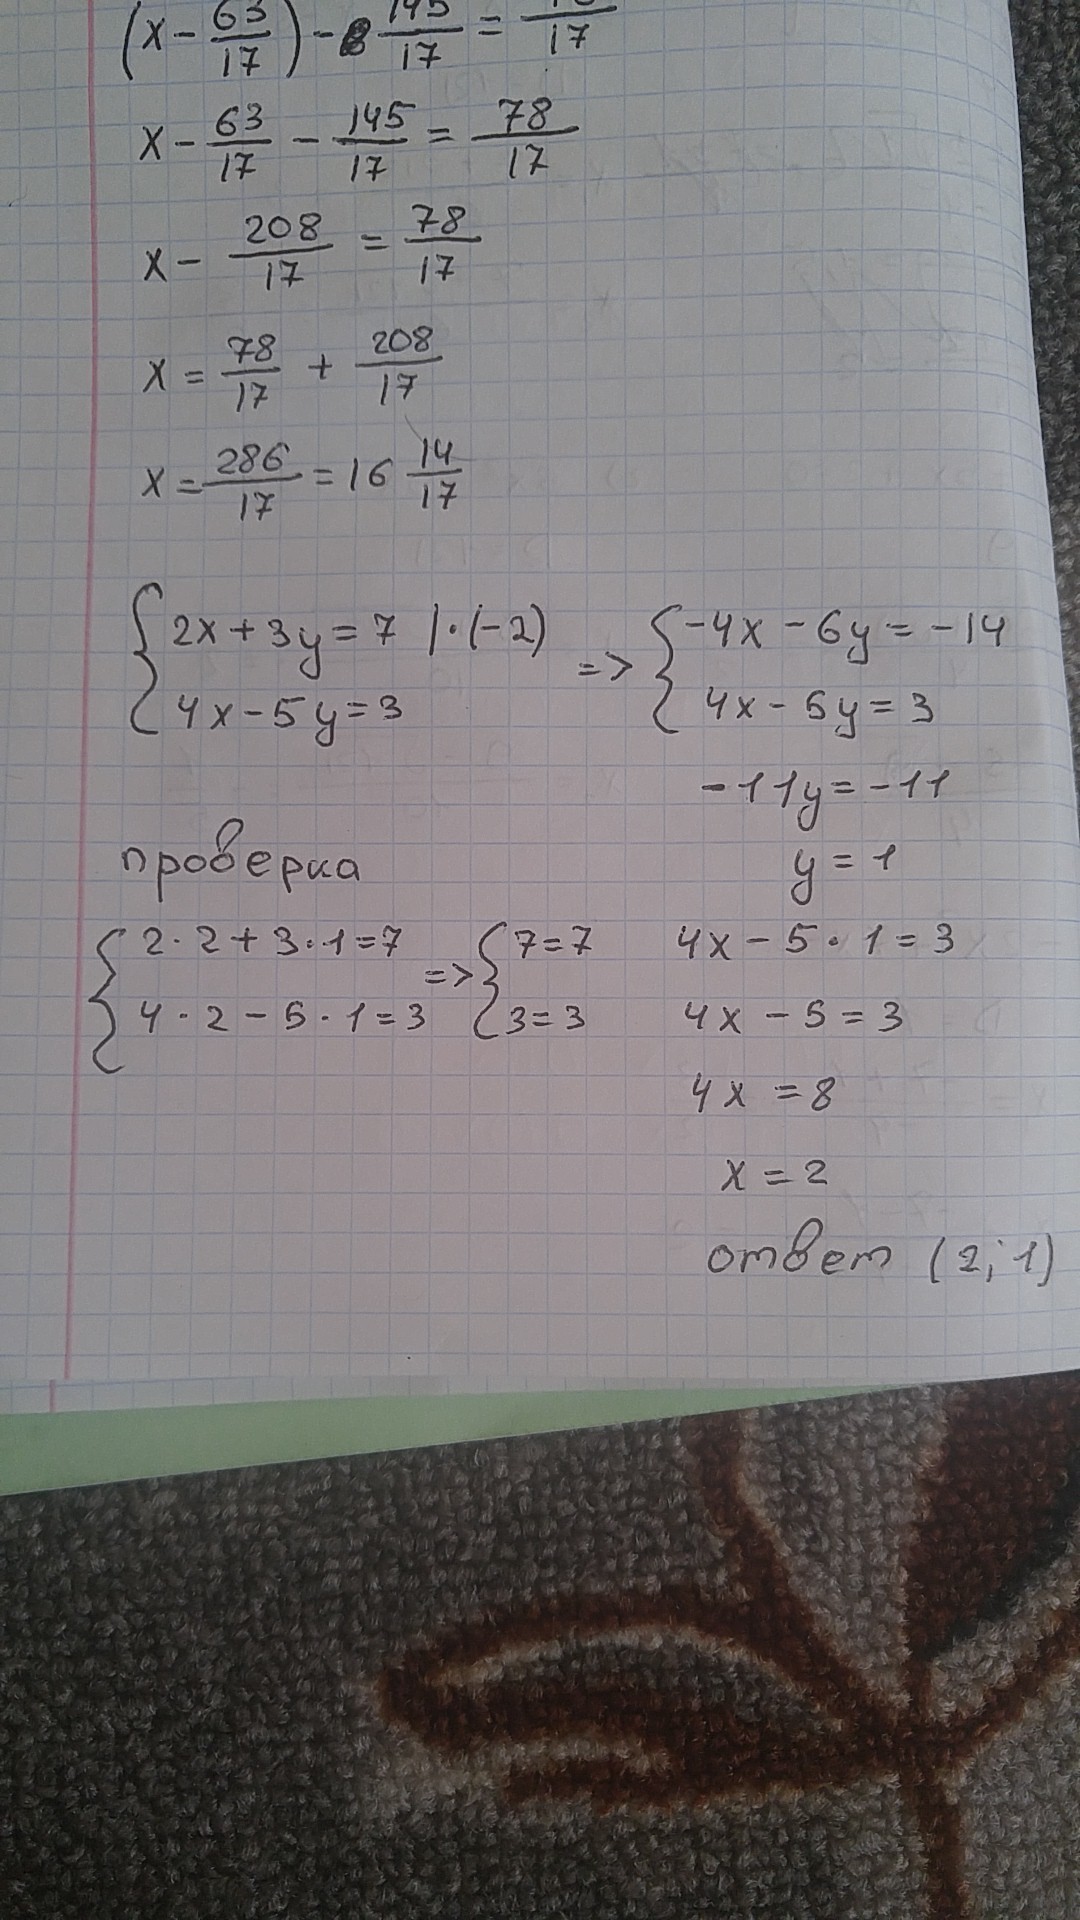 (x - 63/17) - 145/17 = /17
x - 63/17 - 145/17 = 78/17
x - 208/17 = 78/17
x = 78/17 + 208/17
x = 286/17 = 16 14/17
{ 2x + 3y = 7 | · (-2) => { -4x - 6y = -14
4x - 5y = 3 4x - 5y = 3
-11y = -11
y = 1
проверка
{ 2 · 2 + 3 · 1 = 7 => { 7 = 7
4 · 2 - 5 · 1 = 3 3 = 3
4x - 5 · 1 = 3
4x - 5 = 3
4x = 8
x = 2
ответ (2; 1)